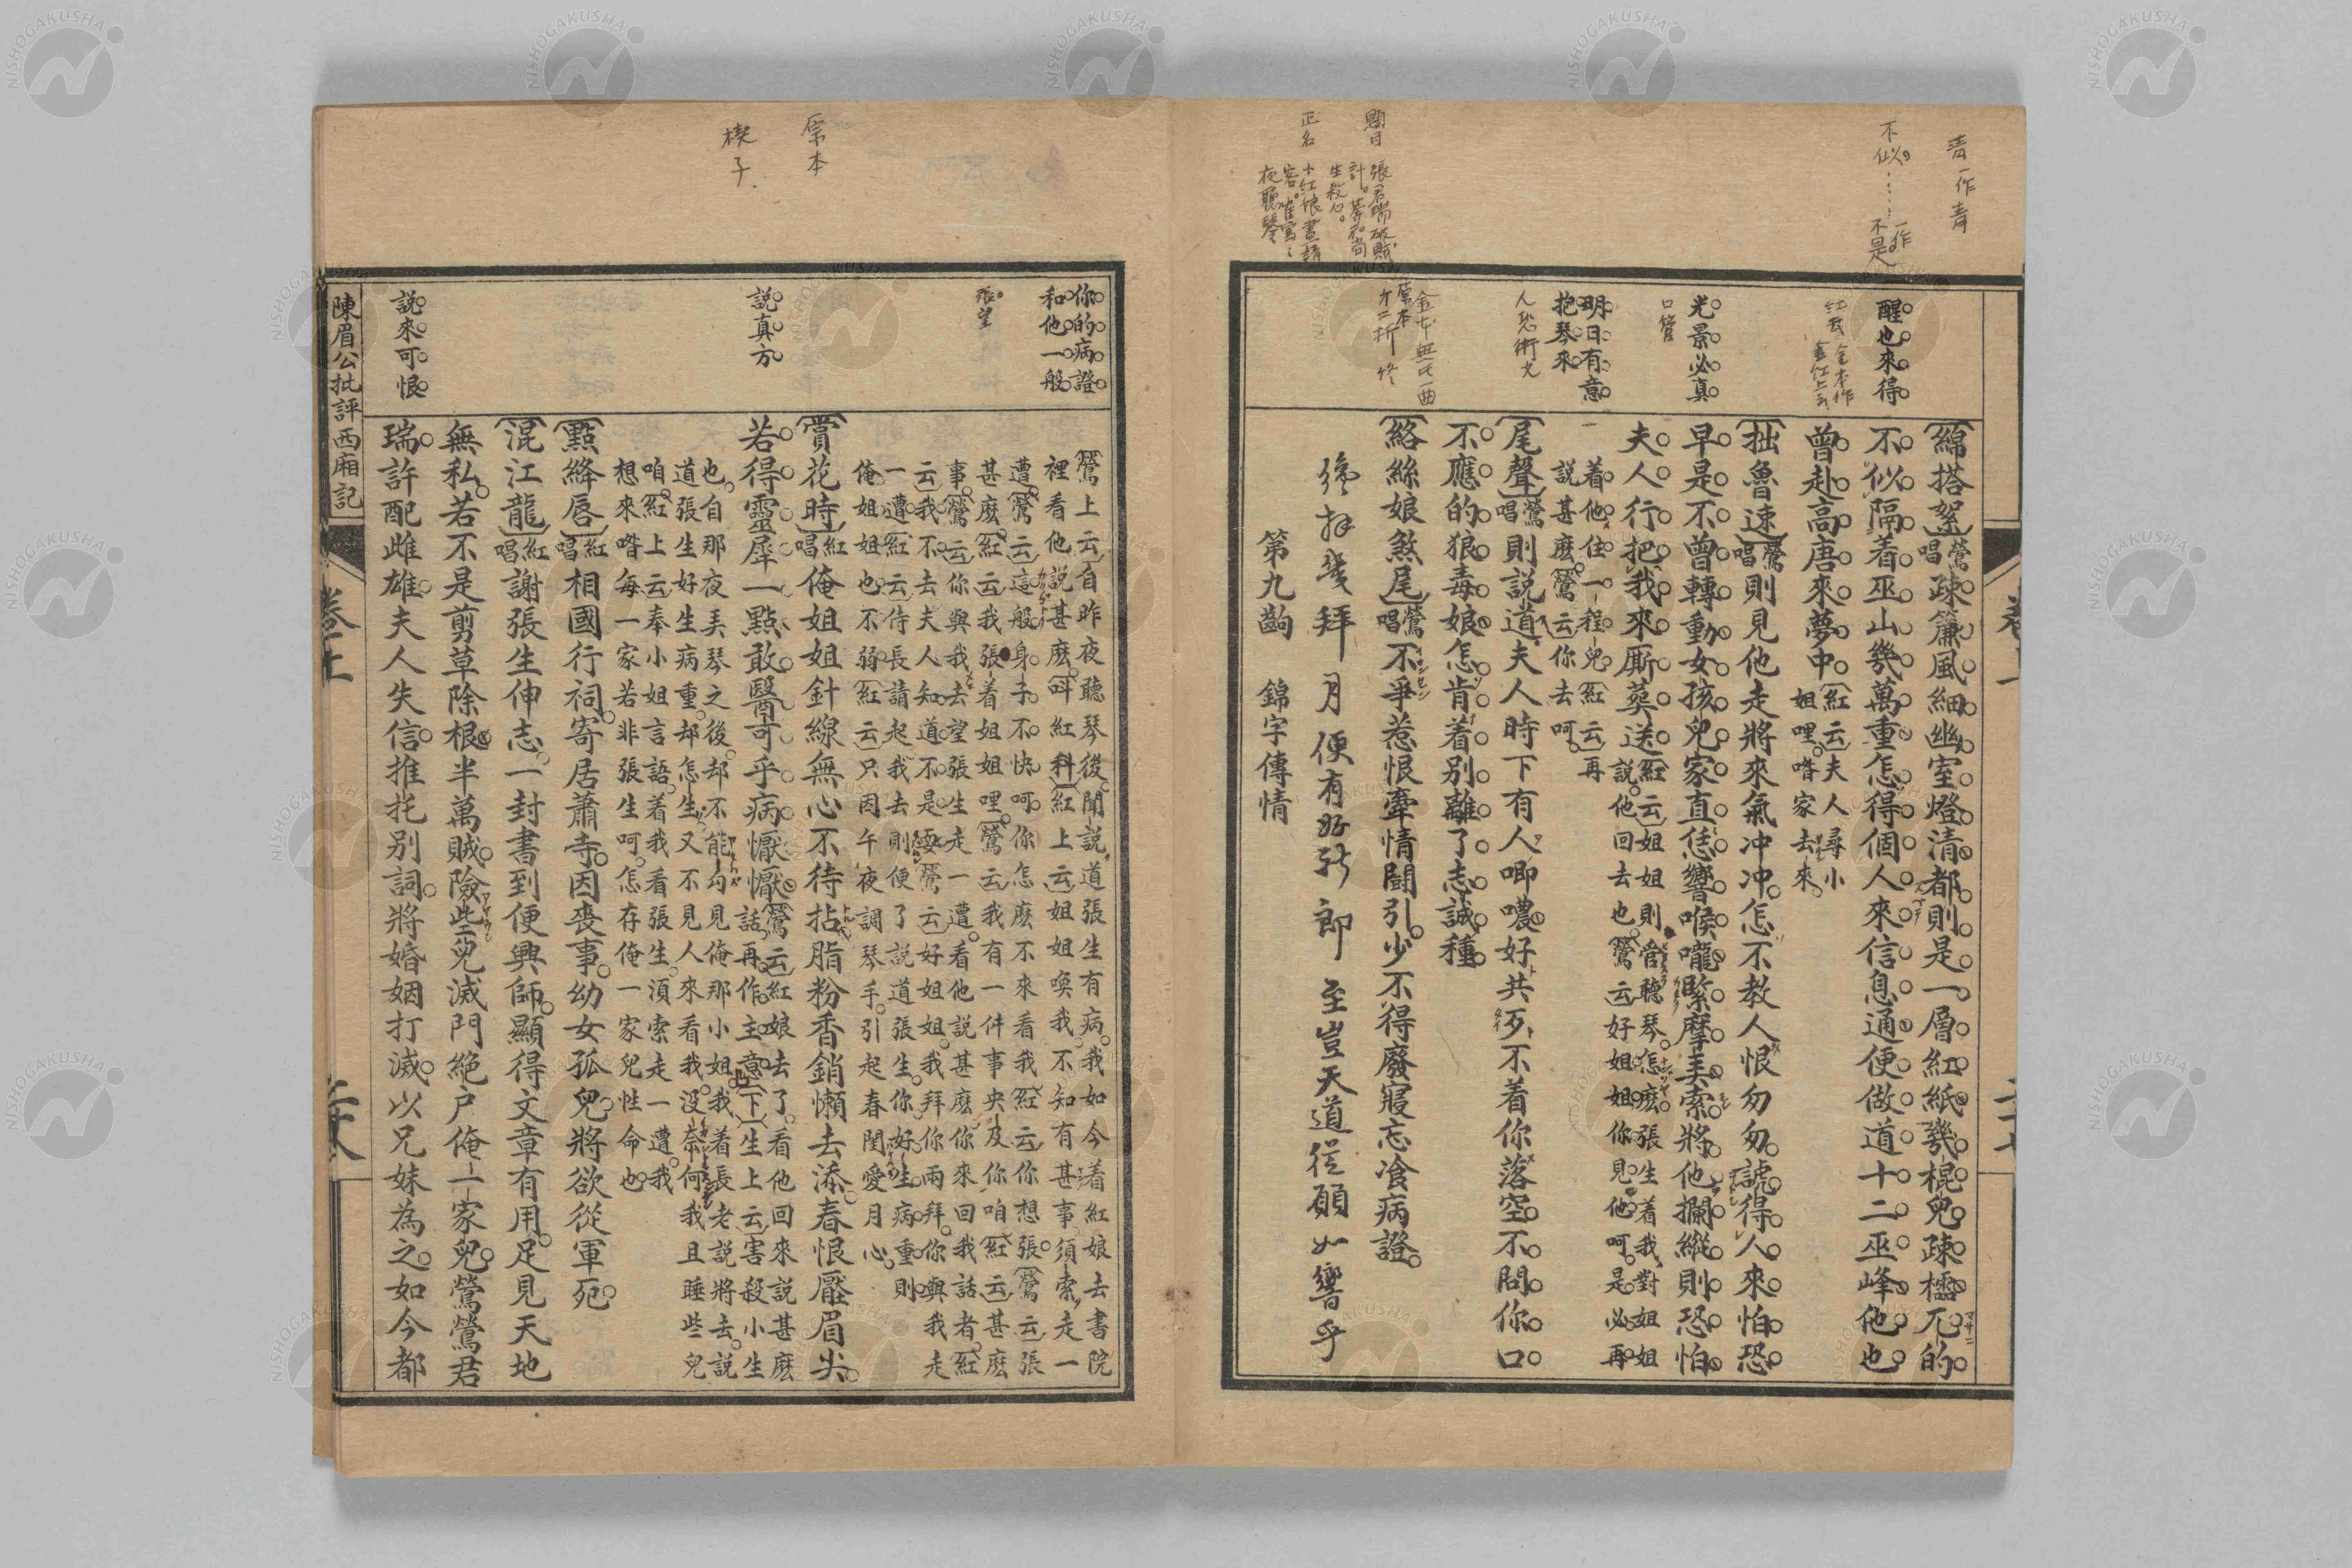 青一作青
不似……一作不是
題目
張君瑞破賊計。莽和尚生殺心。
正名
小紅娘晝請客。崔鶯々夜聽琴
醒也來得
紅云 金本作
鶯紅上云
光景必真
口管
明日有意
抱琴來
金本無此一曲
原本
才二折 終
〔綿搭絮〕鶯唱疎簾風細幽室燈清都則是一層紅紙幾棍兒疎櫺兀的
不似隔着巫山幾萬重怎得個人來信息通便做道十二巫峰他也
曾赴高唐來夢中〔紅云〕夫人尋小姐哩喒家去來
〔拙魯速〕鶯唱則見他走將來氣冲冲怎不教人恨匆匆諕得人來怕恐
早是不曾轉動女孩兒家直恁響喉嚨緊摩弄索將他攔縱則恐怕
夫人行把我來厮葬送〔紅云〕姐姐則管聽琴怎麽張生着我對姐姐說他回去也〔鶯云〕好姐姐你見他呵是必再
着他住一程兒〔紅云〕再說甚麽〔鶯云〕你去呵
〔尾聲〕鶯唱則説道夫人時下有人唧噥好共歹不着你落空不問你口
不應的狼毒娘怎肯着別離了志誠種
〔絡絲娘煞尾〕鶯唱不爭惹恨牽情鬪引少不得廢寢忘飡病證
幾拜月便有好新郎 至豈天道從願如響乎
第九齣 錦字傳情
卷上
二十七
原本
楔子
你的病證
和他一般
張望
説真方
説來可恨
〔鶯上云〕自昨夜聽琴後聞説道張生有病我如今着紅娘去書院
裡看他説甚麽〔叫紅科〕〔紅上云〕姐姐喚我不知有甚事須索走一
遭〔鶯云〕這般身子不快呵你怎麽不來看我〔紅云〕你想張〔鶯云〕張
甚麽〔紅云〕我張着姐姐哩〔鶯云〕我有一件事央及你咱〔紅云〕甚麽
事〔鶯云〕你與我去望張生走一遭看他説甚麽你來回我話者〔紅
云〕我不去夫人知道不是耍〔鶯云〕好姐姐我拜你兩拜你與我走
一遭〔紅云〕侍長請起我去則便了説道張生你好生病重則
俺姐姐也不弱〔紅云〕只因午夜調琴手引起春閨愛月心
〔賞花時〕紅唱俺姐姐針線無心不待拈脂粉香銷懶去添春恨壓眉尖
若得靈犀一點敢醫可乎病懨懨〔鶯云〕紅娘去了看他回來説甚麽話再作主意〔下〕〔生上云〕害殺小生
也自那夜弄琴之後却不能勾見俺那小姐我着長老説將去説
道張生好生病重却怎生又不見人來看我没奈何我且睡些兒
咱〔紅上云〕奉小姐言語着我看張生須索走一遭我
想來喒每一家若非張生呵怎存俺一家兒性命也
〔點絳唇〕紅唱相國行祠寄居蕭寺因喪事幼女孤兒將欲從軍死
〔混江龍〕紅唱謝張生伸志一封書到便興師顯得文章有用足見天地
無私若不是剪草除根半萬賊險些兒滅門絶戸俺一家兒鶯鶯君
瑞許配雌雄夫人失信推托別詞將婚姻打滅以兄妹為之如今都
陳眉公批評西廂記
卷上
二十八